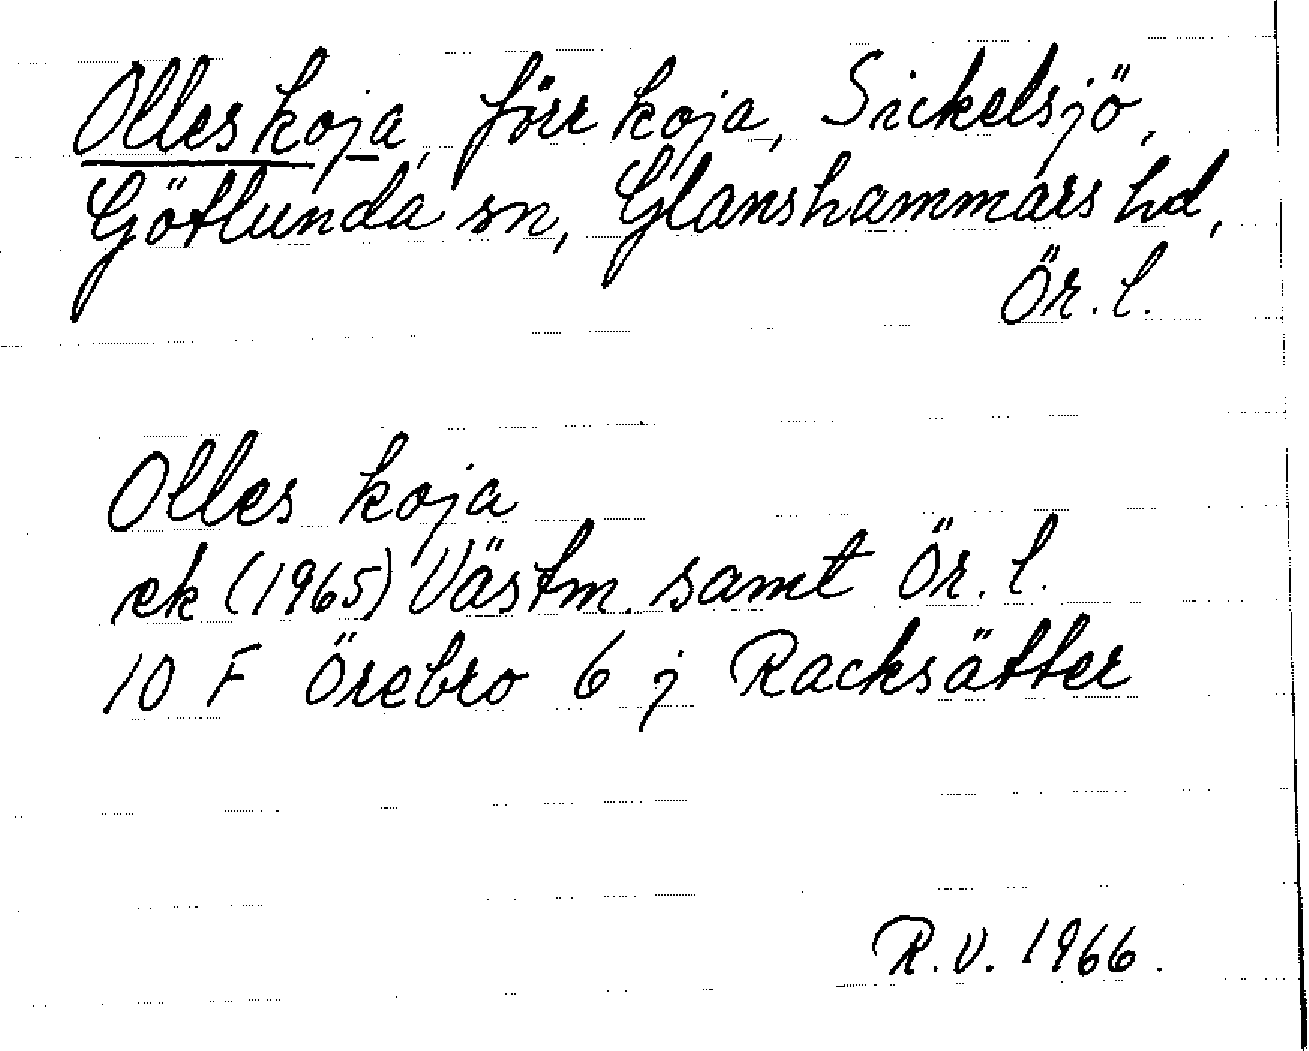 Olles koja, förr koja, Sickelsjö,
Götlunda sn, Glanshammars hd,
Ör. l.
Olles koja
ek (1965) Västm. samt Ör. l.
10 F Örebro 6 j Racksätter
R.V. 1966.